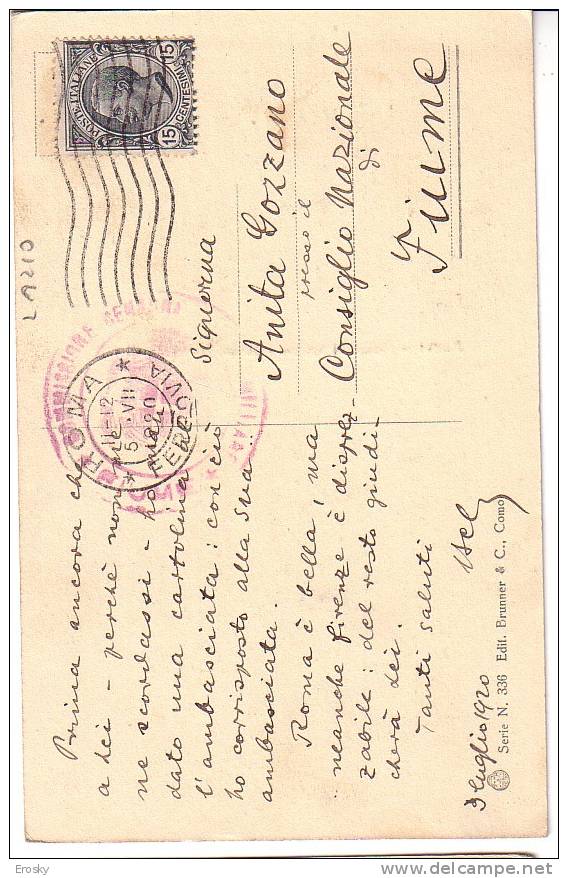 POSTE·ITALIANE
15 CENTESIMI 15
LAZIO
ROMA
FERROVIA
11-12
5·VII
Signorina
Anita Gozzano
presso il
Consiglio Nazionale
di
Fiume
Prima ancora che
a Lei - perchè non
ne scordassi - ho
dato una cartolina
l'ambasciata: con ciò
ho corrisposto alla sua
ambasciata.
Roma è bella, ma
neanche Firenze è disprez-
zabile: del resto giudi-
cherà Lei.
Tanti saluti
3 luglio 1920
Serie N. 336 Edit. Brunner & C., Como
Erosky
www.delcampe.net